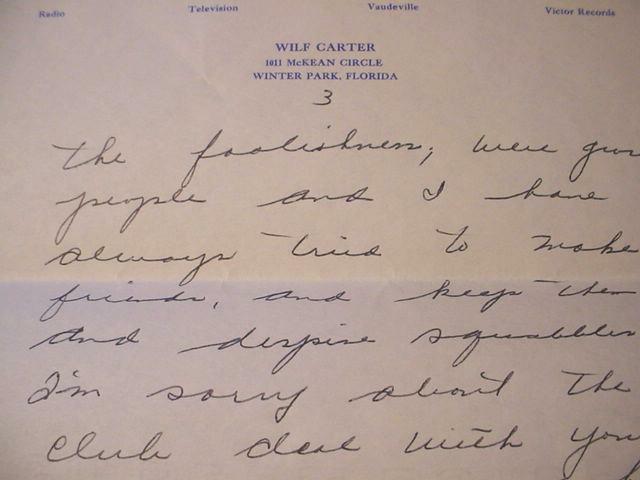 Radio Television Vaudeville Victor Records
WILF CARTER
1011 McKEAN CIRCLE
WINTER PARK, FLORIDA
3
the foolishness, were grow
people and I have
always tried to make
friends, and keep them
and despise squabbles
I'm sorry about the
club deal with you